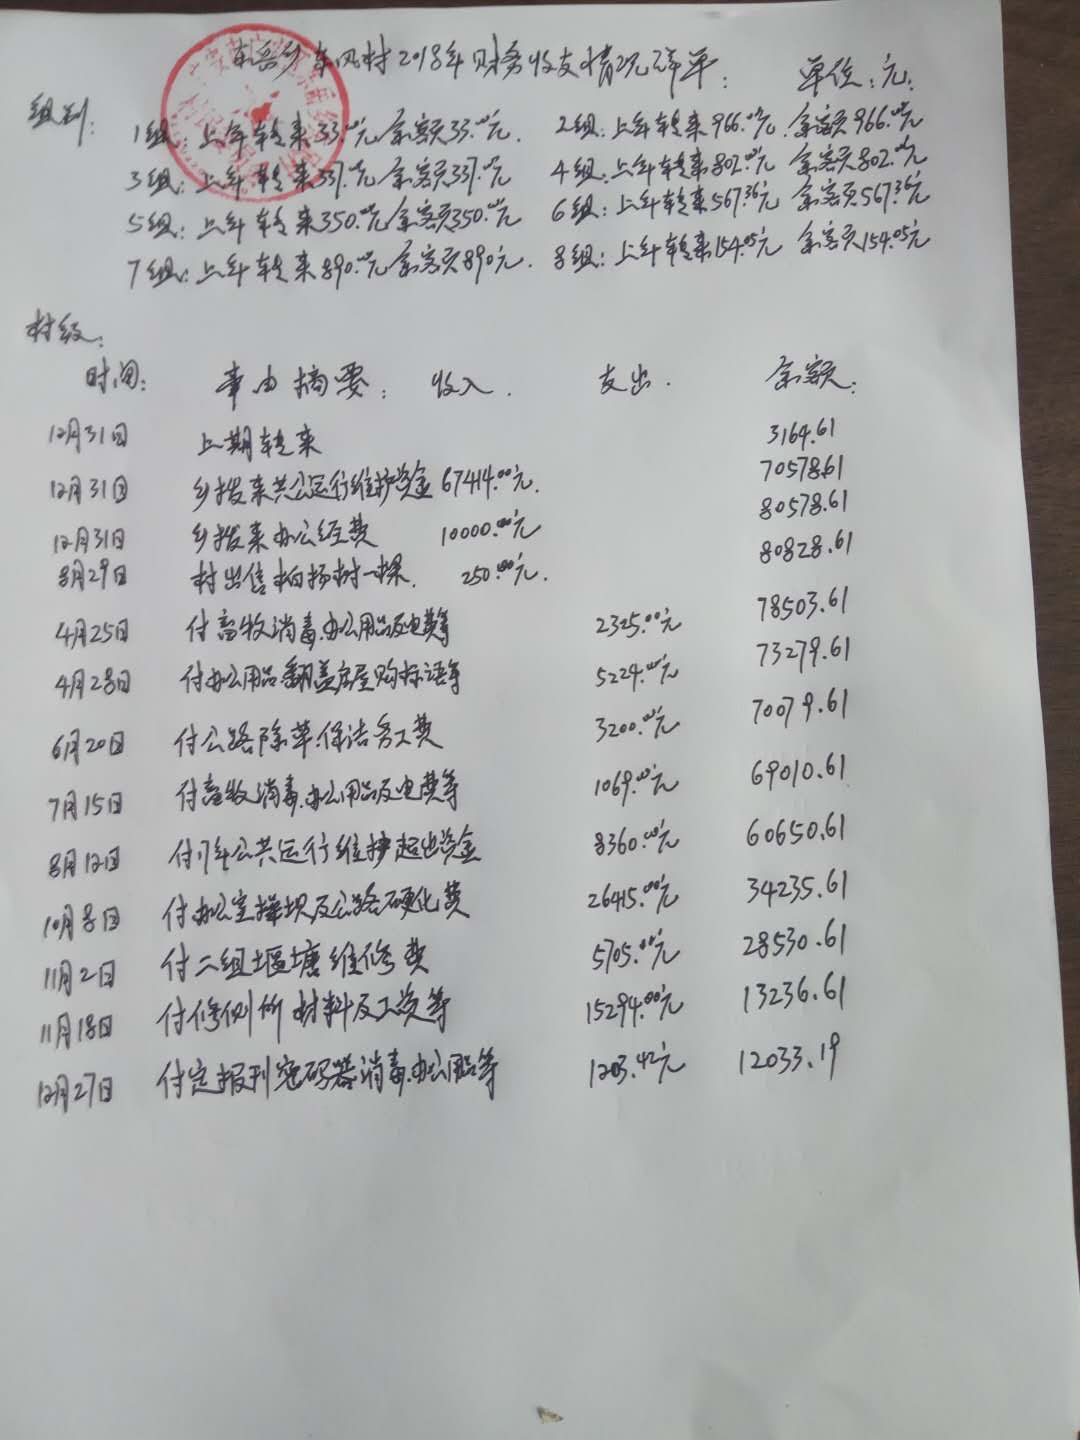 东岳乡东风村2018年财务收支情况详单: 单位:元.
组别:
1组:上年转来33.00元余额33.00元. 2组:上年转来966.00元.余额966.00元
3组:上年转来337.00元余额337.00元 4组:上年转来802.00元 余额802.00元
5组:上年转来350.00元余额350.00元 6组:上年转来567.36元 余额567.36元
7组:上年转来890.00元余额890元. 8组:上年转来154.05元 余额154.05元
村级:
时间: 事由摘要: 收入. 支出. 余额:
12月31日 上期转来 3164.61
12月31日 乡拨来共公运行维护资金 67414.00元. 70578.61
12月31日 乡拨来办公经费 10000.00元 80578.61
8月29日 村出售柏杨树一棵. 250.00元. 80828.61
4月25日 付畜牧消毒.办公用品及电费等 2325.00元 78503.61
4月28日 付办公用品.翻盖房屋购标语等 5224.00元 73279.61
6月20日 付公路除草.保洁务工费 3200.00元 70079.61
7月15日 付畜牧消毒.办公用品及电费等 1069.00元 69010.61
8月12日 付17年公共运行维护超出资金 8360.00元 60650.61
10月8日 付办公室操坝及公路硬化费 26415.00元 34235.61
11月2日 付二组堰塘维修费 5705.00元 28530.61
11月18日 付修侧所材料及工资等 15294.00元 13236.61
12月27日 付定报刊.密码器.消毒.办公用品等 1203.42元 12033.19